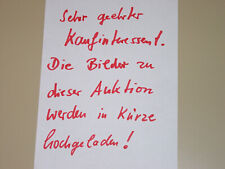 Sehr geehrter
Kaufinteressent.
Die Bilder zu
dieser Auktion
werden in Kürze
hochgeladen!